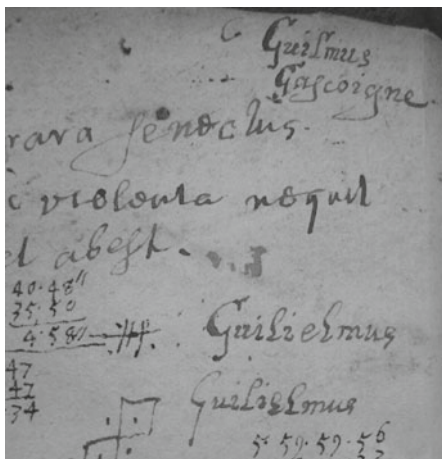 Guilmus
Gascoigne.
rara senectus.
violenta nequit
et abest.
40.48"
35.50
4.58"
Guilielmus
47
47
34
Guilielmus
5. 59. 59. 56